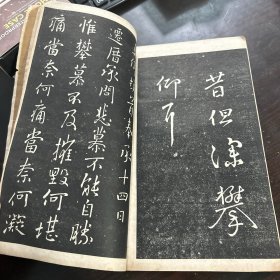 昔但深攀
仰耳
承十四日
遷厝承問悲慕不能自勝
惟攀慕不及摧毀何堪
痛當奈何痛當奈何凝
CASE